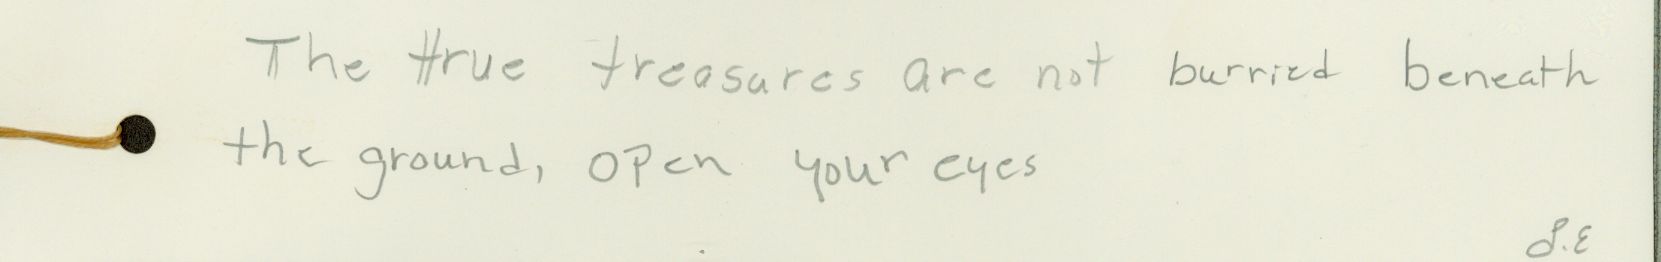 The true treasures are not burried beneath
the ground, open your eyes
S.E